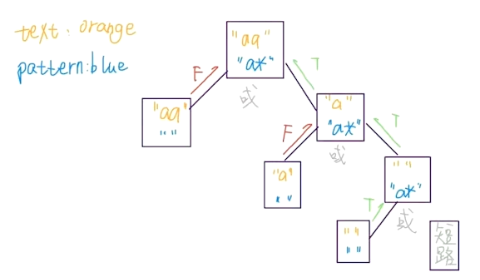 text: orange
pattern:blue
"aa"
"a*"
F
T
或
"aa"
" "
"a"
"a*"
F
T
或
"a"
" "
" "
"a*"
T
或
" "
" "
短
路